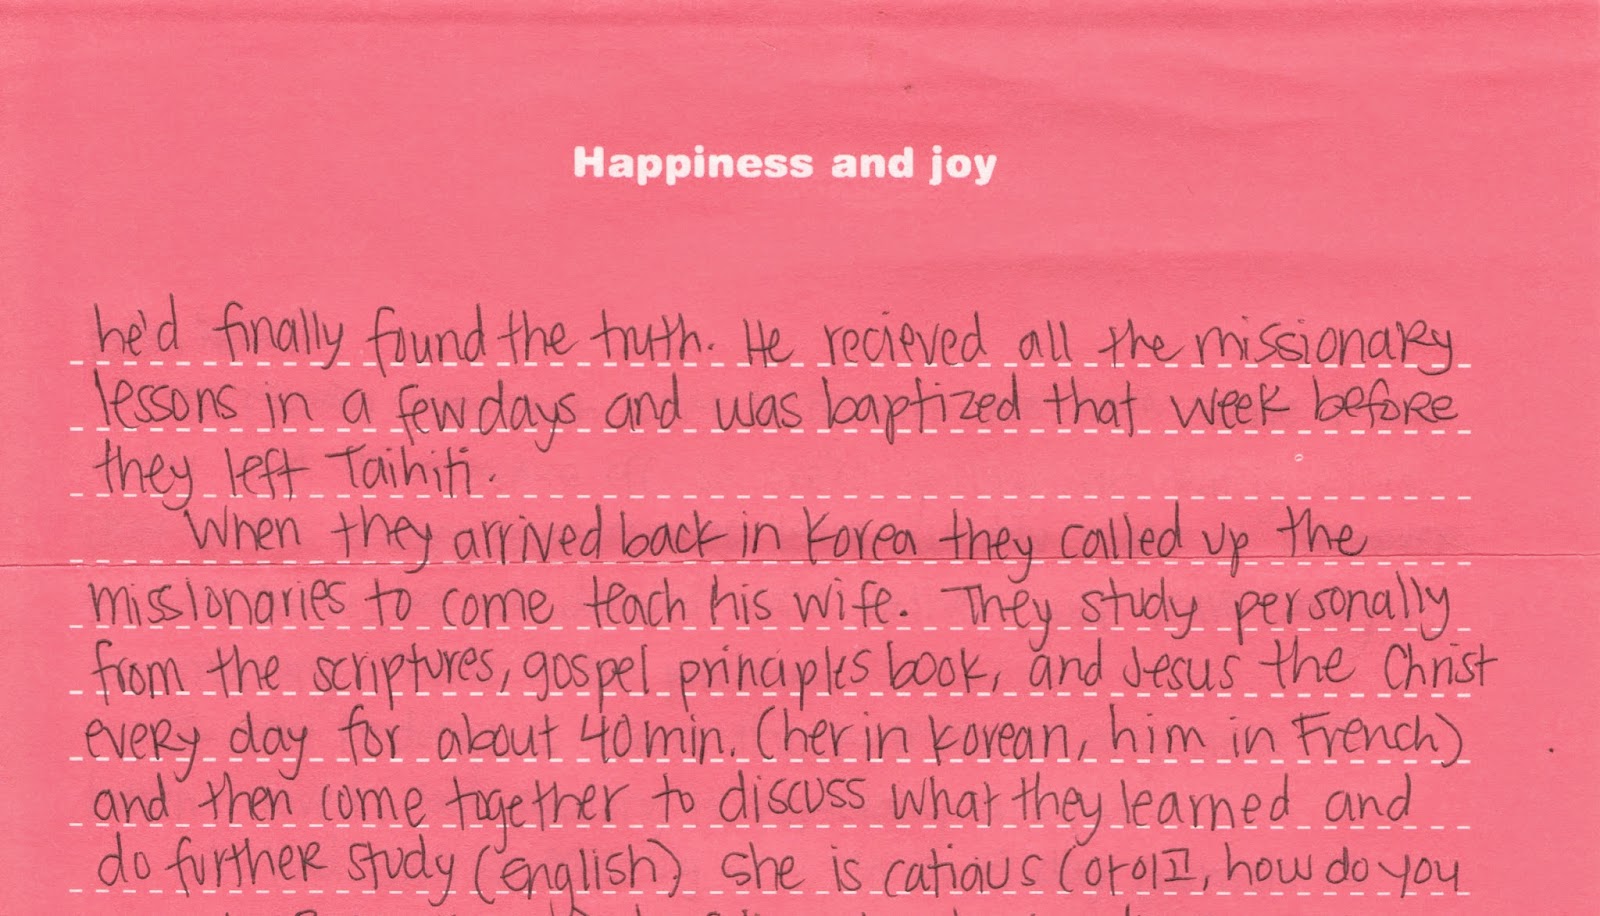 Happiness and joy
he'd finally found the truth. He recieved all the missionary
lessons in a few days and was baptized that week before
they left Taihiti.
When they arrived back in Korea they called up the
missionaries to come teach his wife. They study personally
from the scriptures, gospel principles book, and Jesus the Christ
every day for about 40 min. (her in korean, him in French)
and then come together to discuss what they learned and
do further study (english) she is catious (, how do you